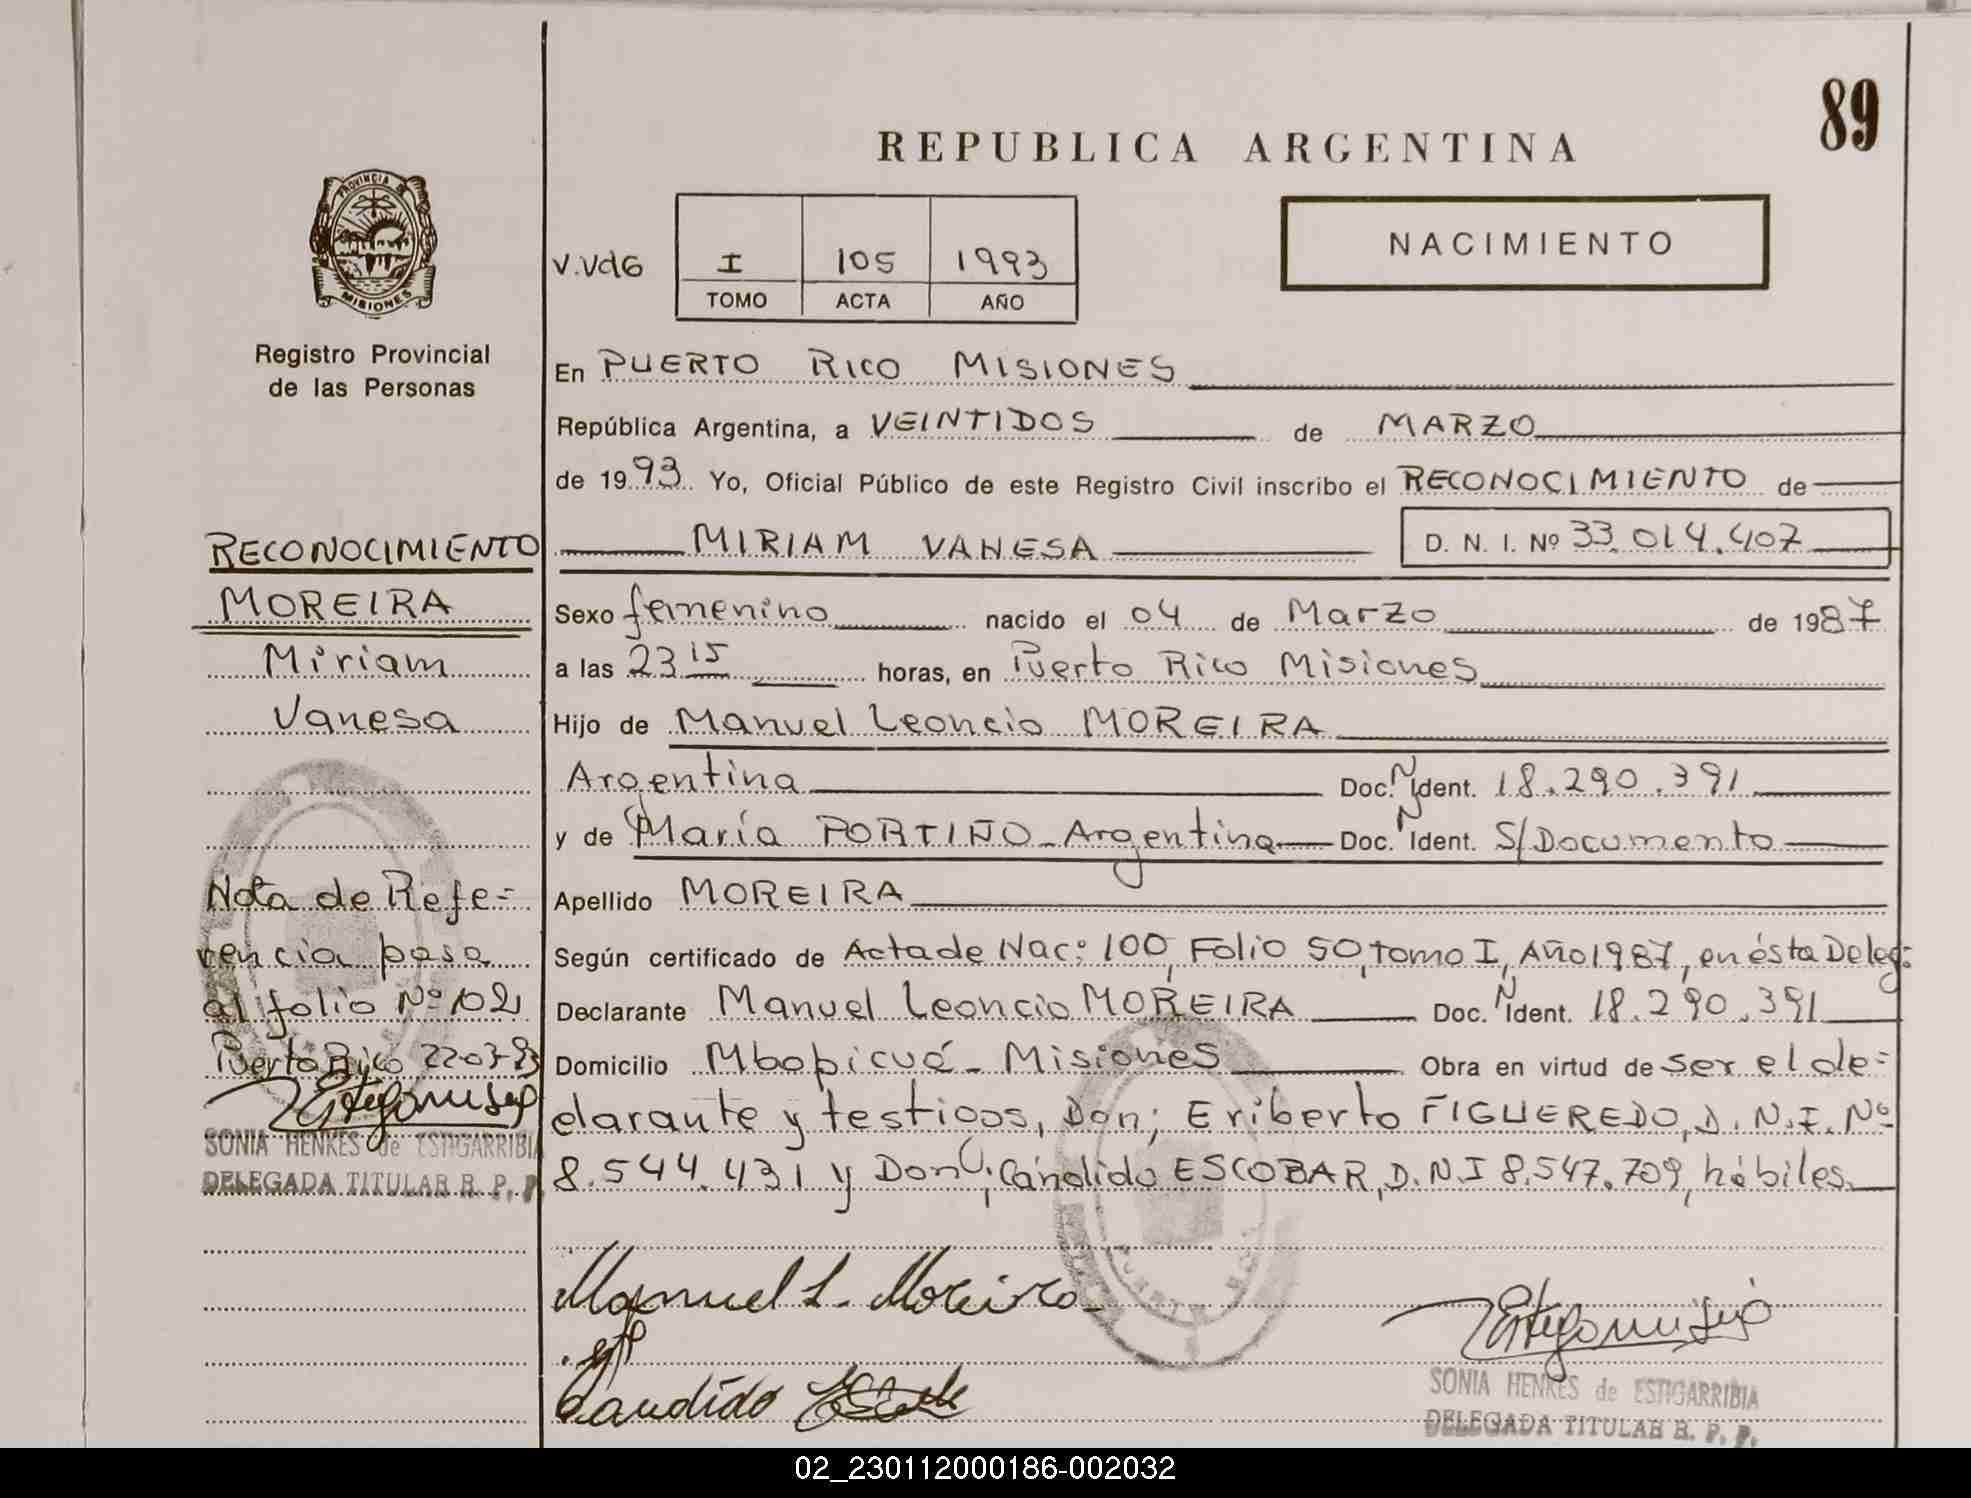 89
REPUBLICA ARGENTINA
PROVINCIA DE
MISIONES
Registro Provincial
de las Personas
V.VdG
I 105 1993
TOMO ACTA AÑO
NACIMIENTO
En PUERTO RICO MISIONES
República Argentina, a VEINTIDOS de MARZO
de 1993 Yo, Oficial Público de este Registro Civil inscribo el RECONOCIMIENTO de
MIRIAM VANESA D. N. I. Nº 33.014.407
Sexo femenino nacido el 04 de Marzo de 1987
a las 23 15 horas, en Puerto Rico Misiones
Hijo de Manuel Leoncio MOREIRA
Argentina Doc. N Ident. 18.290.391
y de María PORTIÑO - Argentina Doc. N Ident. S/Documento
Apellido MOREIRA
Según certificado de Acta de Nac: 100, Folio 50, Tomo I, Año 1987, en ésta Deleg:
Declarante Manuel Leoncio MOREIRA Doc. N Ident. 18.290.391
Domicilio Mbopicuá - Misiones Obra en virtud de ser el de=
clarante y testigos, Don; Eriberto FIGUEREDO, D.N.I. Nº
8.544.431 y Don; Cándido ESCOBAR, D.N.I 8.547.709, hábiles.
RECONOCIMIENTO
MOREIRA
Miriam
Vanesa
Nota de Refe=
rencia pasa
al folio Nº 102
Puerto Rico 22-03-93
SONIA HENKES de ESTIGARRIBIA
DELEGADA TITULAR R. P. P.
Manuel L. Moreira
Candido
SONIA HENKES de ESTIGARRIBIA
DELEGADA TITULAR R. P. P.
02_230112000186-002032